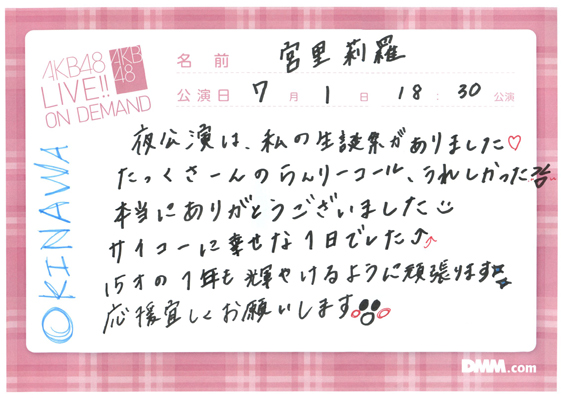 AKB48
LIVE!!
ON DEMAND
AKB
48
名前 宮里莉羅
公演日 7月1日 18:30 公演
OKINAWA
夜公演は、私の生誕祭がありました♡
たっくさーんのらんりーコール、うれしかった
本当にありがとうございました
サイコーに幸せな1日でした⤴
15才の1年も輝やけるように頑張ります
応援宜しくお願いします
DMM.com